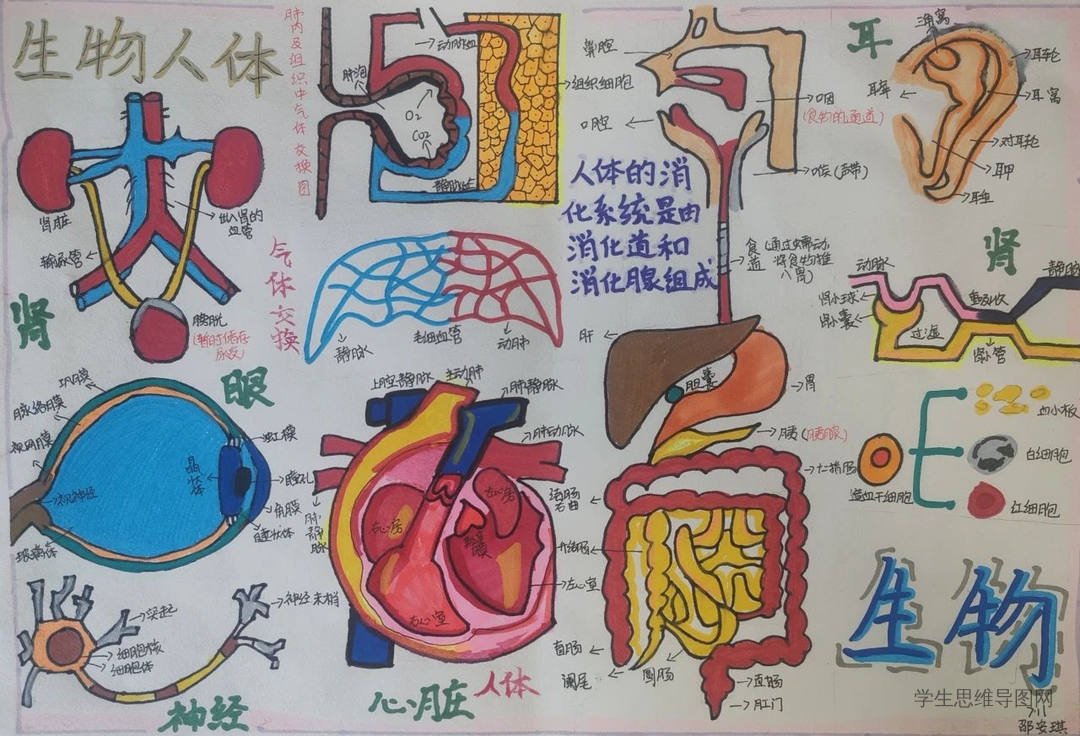 生物人体
肺内及组织中气体交换图
肺泡
动脉血
O₂
CO₂
静脉血
组织细胞
鼻腔
口腔
咽
(食物的通道)
喉(声带)
食道
(通过蠕动,
将食物推
入胃)
人体的消
化系统是由
消化道和
消化腺组成
耳
耳轮
耳窝
对耳轮
耳甲
耳垂
肾脏
出入肾的
血管
输尿管
膀胱
(暂时储存
尿液)
肾
气体交换
静脉
毛细血管
动脉
肾
动脉
静脉
肾小球
肾小囊
重吸收
过滤
肾小管
肝
胆囊
胃
胰(胰腺)
十二指肠
结肠
右曲
升结肠
盲肠
阑尾
回肠
直肠
肛门
造血干细胞
血小板
白细胞
红细胞
眼
巩膜
脉络膜
视网膜
视神经
玻璃体
晶状体
虹膜
瞳孔
角膜
睫状体
上腔静脉
主动脉
肺静脉
肺动脉
肺静脉
左心房
右心房
左心室
右心室
心脏
人体
突起
细胞核
细胞体
神经末梢
神经
生物
学生思维导图网
邵安琪